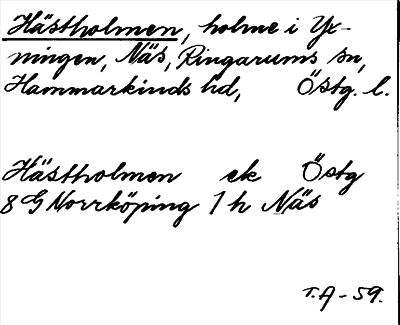 Hästholmen, holme i Yx-
ningen, Näs, Ringarums sn,
Hammarkinds hd, Östg. l.
Hästholmen ek Östg
8 G Norrköping 1 h Näs
T.A - 59.